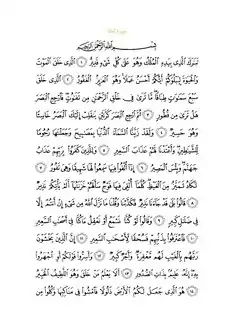 سورة الملك
بسم الله الرحمن الرحيم
تبرك الذي بيده الملك وهو على كل شيء قدير ١ الذي خلق الموت
والحيوة ليبلوكم أيكم أحسن عملا وهو العزيز الغفور ٢ الذي خلق
سبع سموت طباقا ما ترى في خلق الرحمن من تفوت فارجع البصر
هل ترى من فطور ٣ ثم ارجع البصر كرتين ينقلب إليك البصر خاسئا
وهو حسير ٤ ولقد زينا السماء الدنيا بمصبيح وجعلنها رجوما
للشيطين وأعتدنا لهم عذاب السعير ٥ وللذين كفروا بربهم عذاب
جهنم وبئس المصير ٦ إذا ألقوا فيها سمعوا لها شهيقا وهي تفور ٧
تكاد تميز من الغيظ كلما ألقي فيها فوج سألهم خزنتها ألم يأتكم نذير ٨
قالوا بلى قد جاءنا نذير فكذبنا وقلنا ما نزل الله من شيء إن أنتم إلا
في ضلل كبير ٩ وقالوا لو كنا نسمع أو نعقل ما كنا في أصحب السعير
١٠ فاعترفوا بذنبهم فسحقا لأصحب السعير ١١ إن الذين يخشون
ربهم بالغيب لهم مغفرة وأجر كبير ١٢ وأسروا قولكم أو اجهروا
به إنه عليم بذات الصدور ١٣ ألا يعلم من خلق وهو اللطيف الخبير
١٤ هو الذي جعل لكم الأرض ذلولا فامشوا في مناكبها وكلوا من